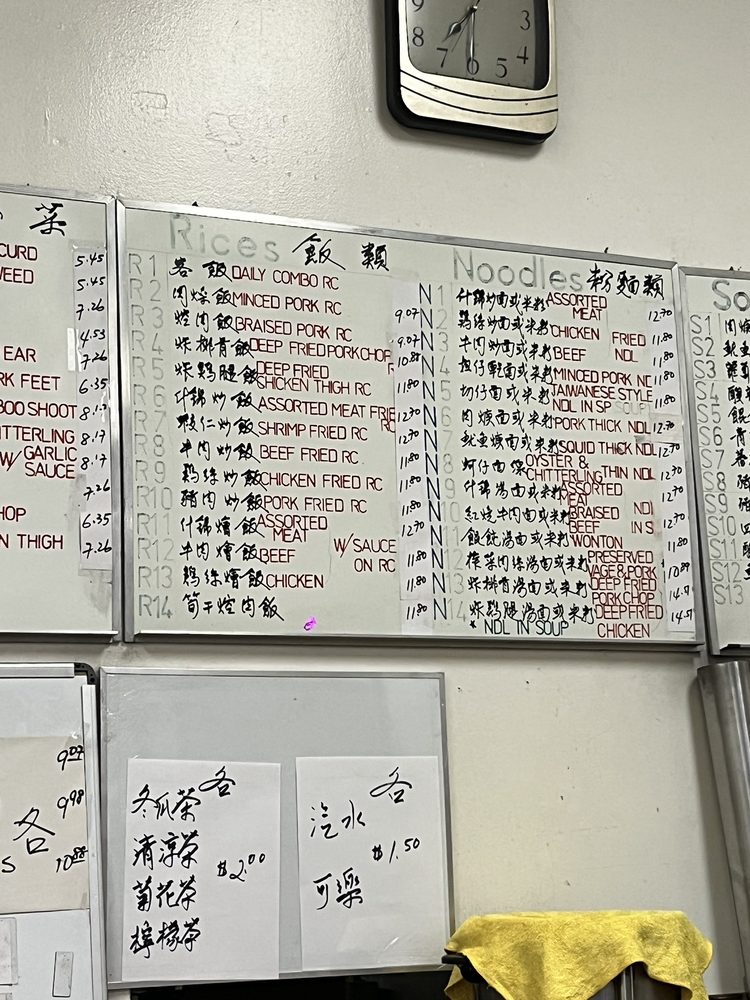 9 3
8 4
7 6 5
菜
CURD 5.45
WEED 5.45
7.26
4.53
EAR 7.26
RK FEET 6.35
BOO SHOOT 8.17
ITTERLING 8.17
W/ GARLIC SAUCE 8.17
7.26
HOP 6.35
N THIGH 7.26
Rices 飯 類
R1 客 飯 DAILY COMBO RC
R2 肉燥飯 MINCED PORK RC 9.07
R3 焢肉飯 BRAISED PORK RC 9.07
R4 炸排骨飯 DEEP FRIED PORK CHOP RC 10.88
R5 炸鷄腿飯 DEEP FRIED CHICKEN THIGH RC 11.80
R6 什錦炒飯 ASSORTED MEAT FRIED RC 12.70
R7 蝦仁炒飯 SHRIMP FRIED RC 12.70
R8 牛肉炒飯 BEEF FRIED RC 11.80
R9 鷄絲炒飯 CHICKEN FRIED RC 11.80
R10 豬肉炒飯 PORK FRIED RC 11.80
R11 什錦燴飯 ASSORTED MEAT 12.70
R12 牛肉燴飯 BEEF W/SAUCE ON RC 11.80
R13 鷄絲燴飯 CHICKEN 11.80
R14 筍干焢肉飯 11.80
Noodles 粉麵類
N1 什錦炒面或米粉 ASSORTED MEAT 12.70
N2 鷄絲炒面或米粉 CHICKEN FRIED 11.80
N3 牛肉炒面或米粉 BEEF NDL 11.80
N4 担仔乾面或米粉 MINCED PORK NDL 11.80
N5 切仔面或米粉 TAIWANESE STYLE NDL IN SP SOUP 11.80
N 肉焿面或米粉 PORK THICK NDL 12.70
N 魷魚焿面或米粉 SQUID THICK NDL 12.70
N8 蚵仔面線 OYSTER & CHITTERLING THIN NDL 12.70
N9 什錦湯面或米粉 ASSORTED MEAT 12.70
N10 紅燒牛肉面或米粉 BRAISED BEEF NDL IN S 12.70
N11 餛飩湯面或米粉 WONTON 11.80
N12 榨菜肉絲湯面或米粉 PRESERVED VAGE&PORK 10.89
N13 炸排骨湯面或米粉 DEEP FRIED PORK CHOP 14.51
N14 炸鷄腿湯面或米粉 DEEP FRIED CHICKEN 14.51
* NDL IN SOUP
So
S1
S2
S3
S4
S5
S6
S7
S8
S9
S10
S11
S12
S13
9.07
9.98
各
S 10.88
各
冬瓜茶
清涼茶
菊花茶
檸檬茶
$2.00
各
汽水
可樂
$1.50